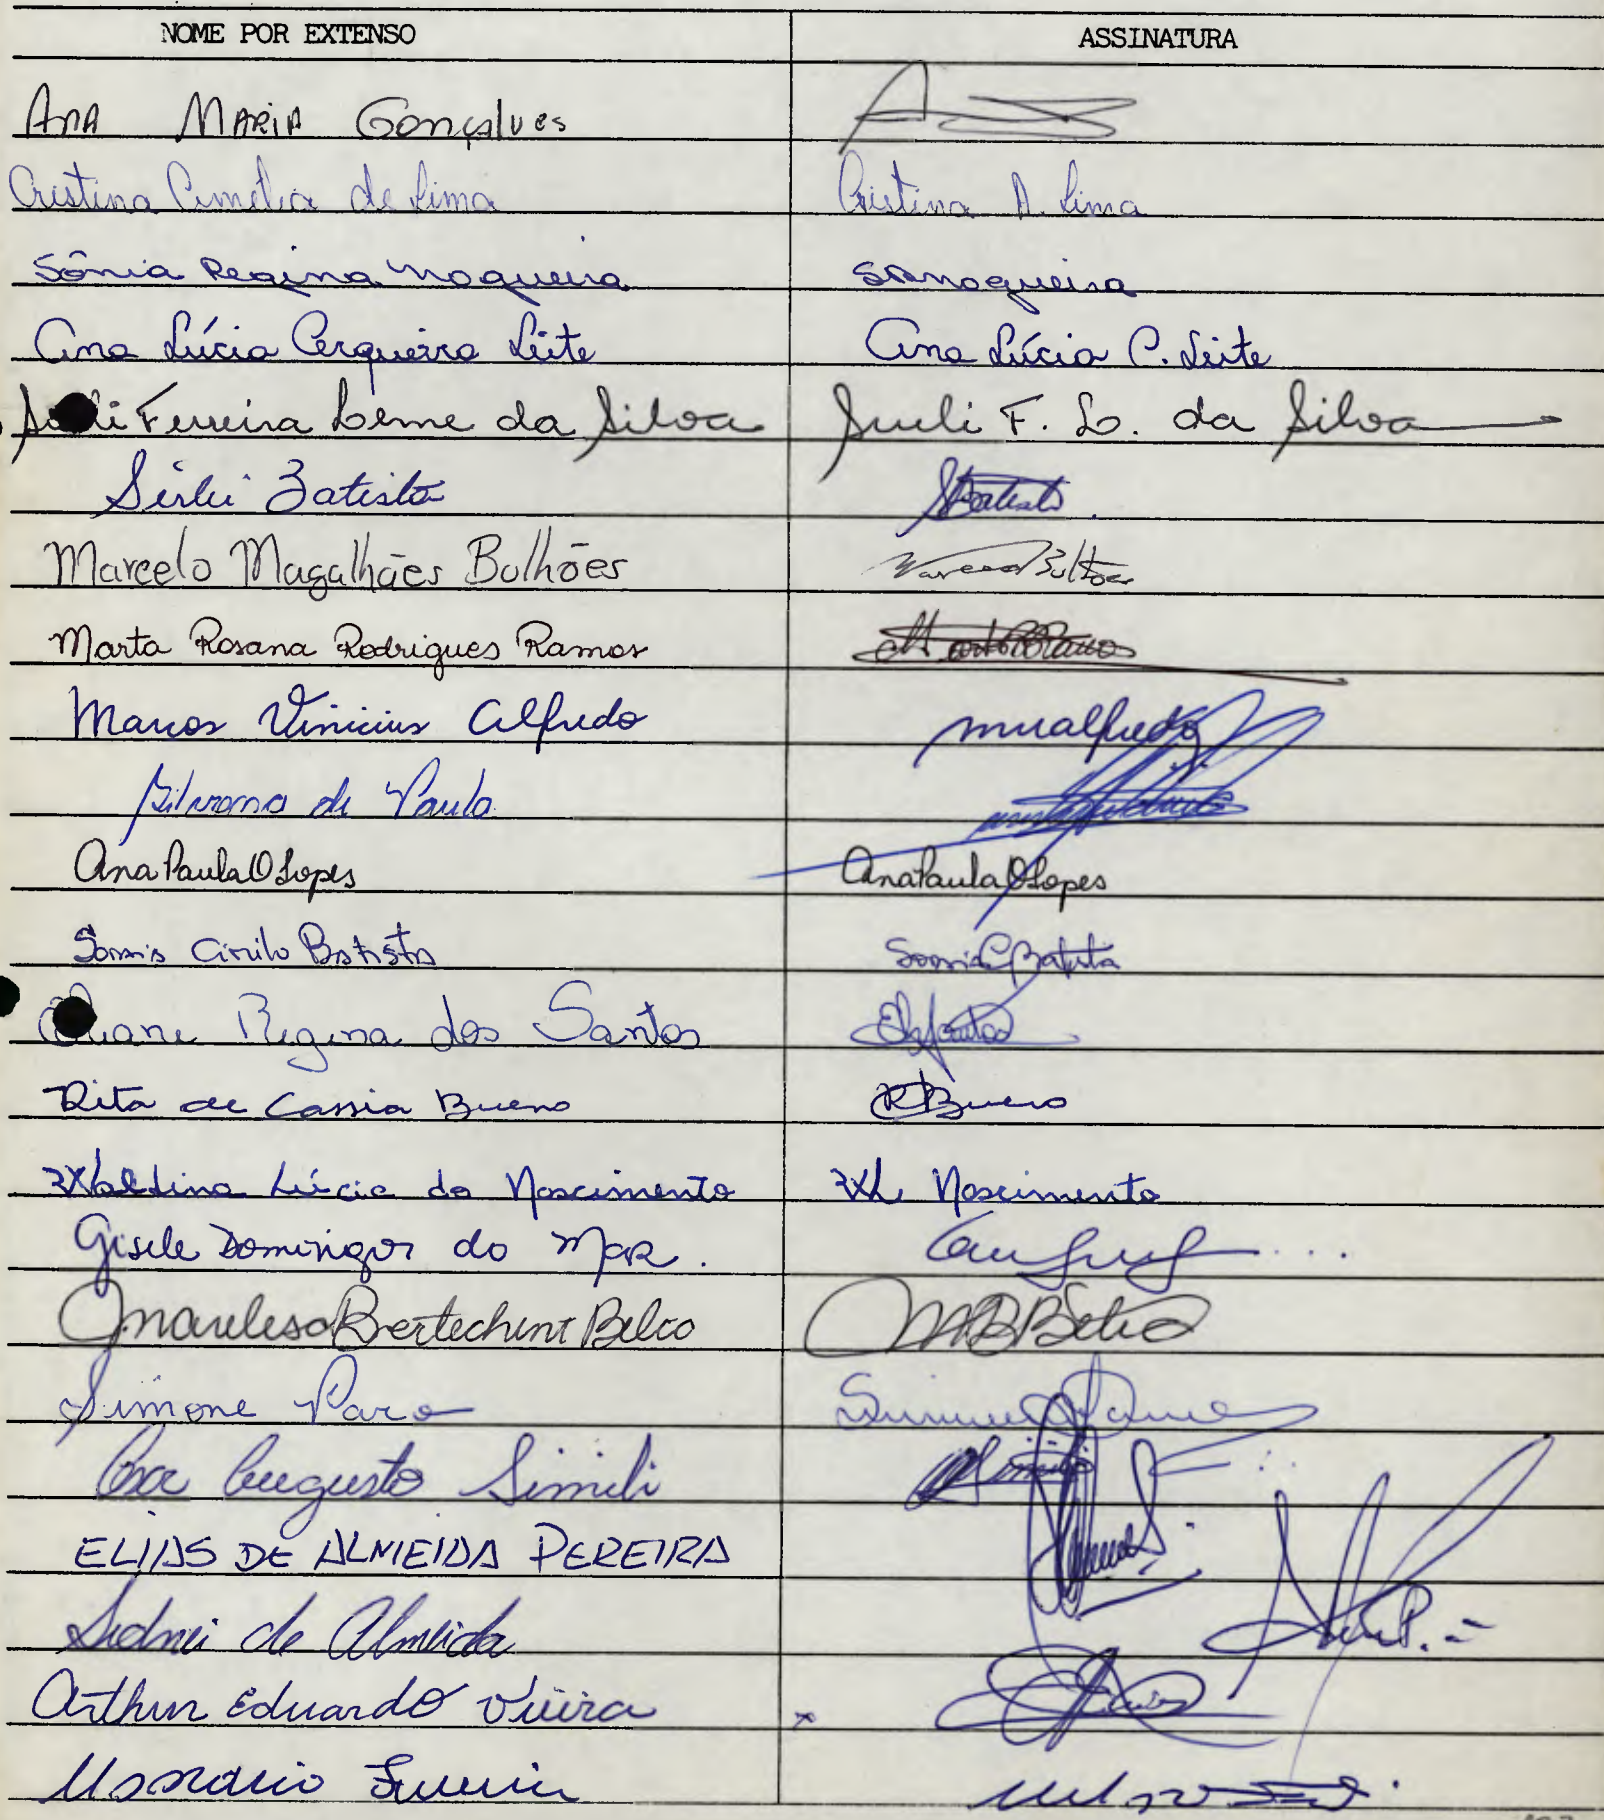 NOME POR EXTENSO ASSINATURA
Ana Maria Gonçalves
Cristina Amélia de Lima Cristina A. Lima
Sônia Regina Nogueira SRNogueira
Ana Lúcia Cerqueira Leite Ana Lúcia C. Leite
Ferreira Leme da Silva Sueli F. L. da Silva
Sirlei Batista SBatista
Marcelo Magalhães Bulhões Marcelo Bulhões
Marta Rosana Rodrigues Ramos Marta RRRamos
Marcos Vinicius Alfredo mvalfredo
Silvana de Paula
Ana Paula O Lopes Ana Paula O Lopes
Sonia Cirilo Batista Sonia C Batista
Regina dos Santos
Rita de Cassia Bueno RBueno
Lúcia do Nascimento Nascimento
Gisele Domingos do Mar.
Bertechini Belco
Simone Paro
Augusto Simili
ELIAS DE ALMEIDA PEREIRA
Sidnei de Almeida
Arthur Eduardo Vieira x